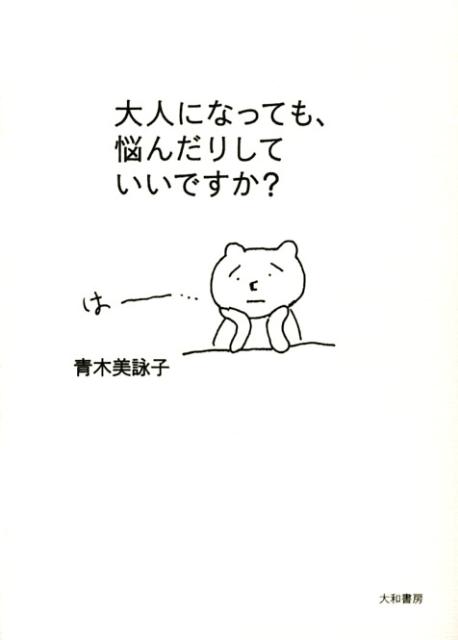 大人になっても、
悩んだりして
いいですか？
はー…
青木美詠子
大和書房